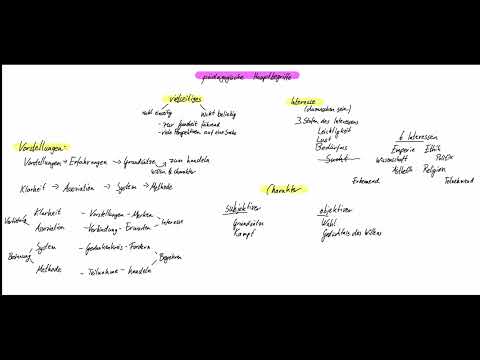 pädagogische Hauptbegriffe
vielseitiges
nicht einseitig
nicht beliebig
- zur Einheit führend
- viele Perspektiven auf eine Sache
Interesse
(dazwischen sein)
3 Stufen des Interesses
Leichtigkeit
Lust
Bedürfnis
Sucht
6 Interessen
Empirie Ethik
Wissenschaft Politik
Ästhetik Religion
Erkennend
Teilnehmend
Vorstellungen:
Vorstellungen → Erfahrungen → Grundsätze → zum handeln
Willen & Charakter
Klarheit → Assoziation → System → Methode
Vertiefung
Klarheit - Vorstellungen - Merken
Assoziation - Verbindung - Erwarten
Interesse
Besinnung
System - Gedankenkreis - Fordern
Methode - Teilnahme - handeln
Begehren
Charakter
subjektiver
Grundsätze
Kampf
objektiver
Wahl
Gedächtnis des Willens